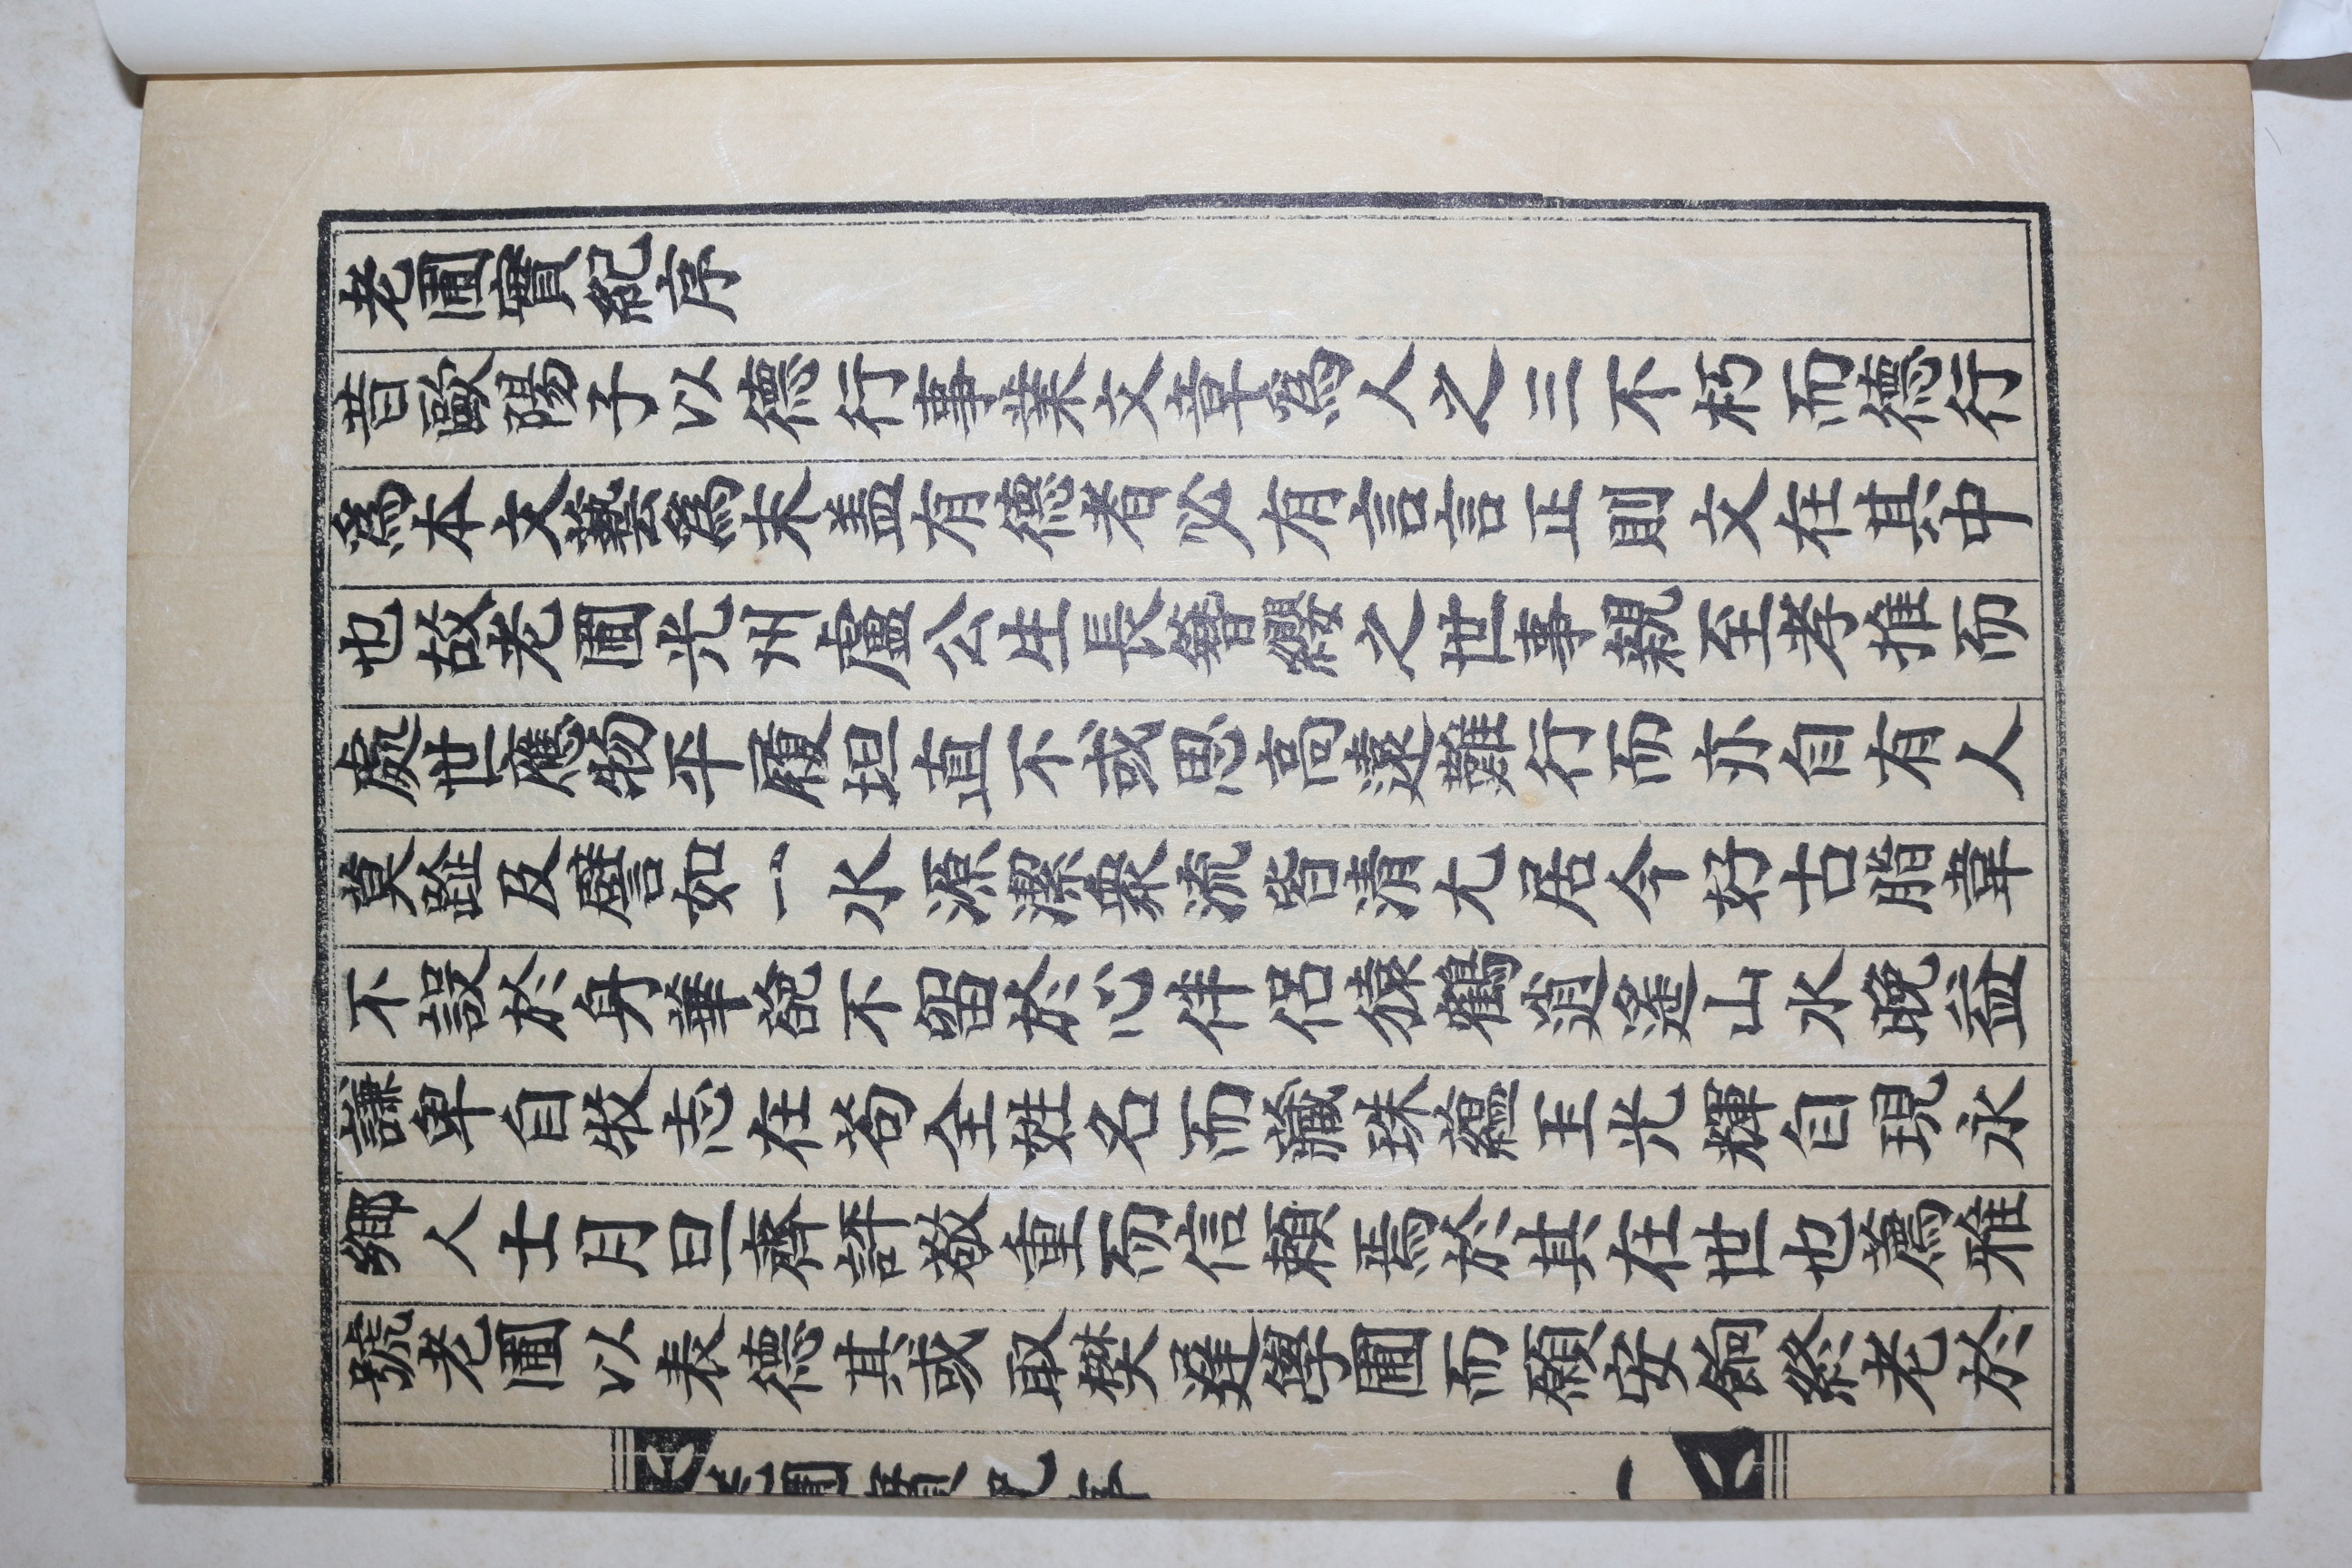 老圃實紀序
昔歐陽子以德行事業文章爲人之三不朽而德行
爲本文藝爲末盖有德者必有言言正則文在其中
也故老圃光州盧公生長簪纓之世事親至孝推而
處世應物平履坦直不或思高遠難行而亦自有人
莫跂及譬如一水源潔衆流皆清尤居今好古脂韋
不設於身華 不留於心伴侶猿鶴逍遙山水晩益
謙卑自牧志在苟全姓名而藏珠蘊玉光輝自現永
鄉人士月旦齊評敬重而信賴焉於其在世也薦雅
號老圃以表德其或取樊遲學圃而願安 終老於
老圃實紀序
一